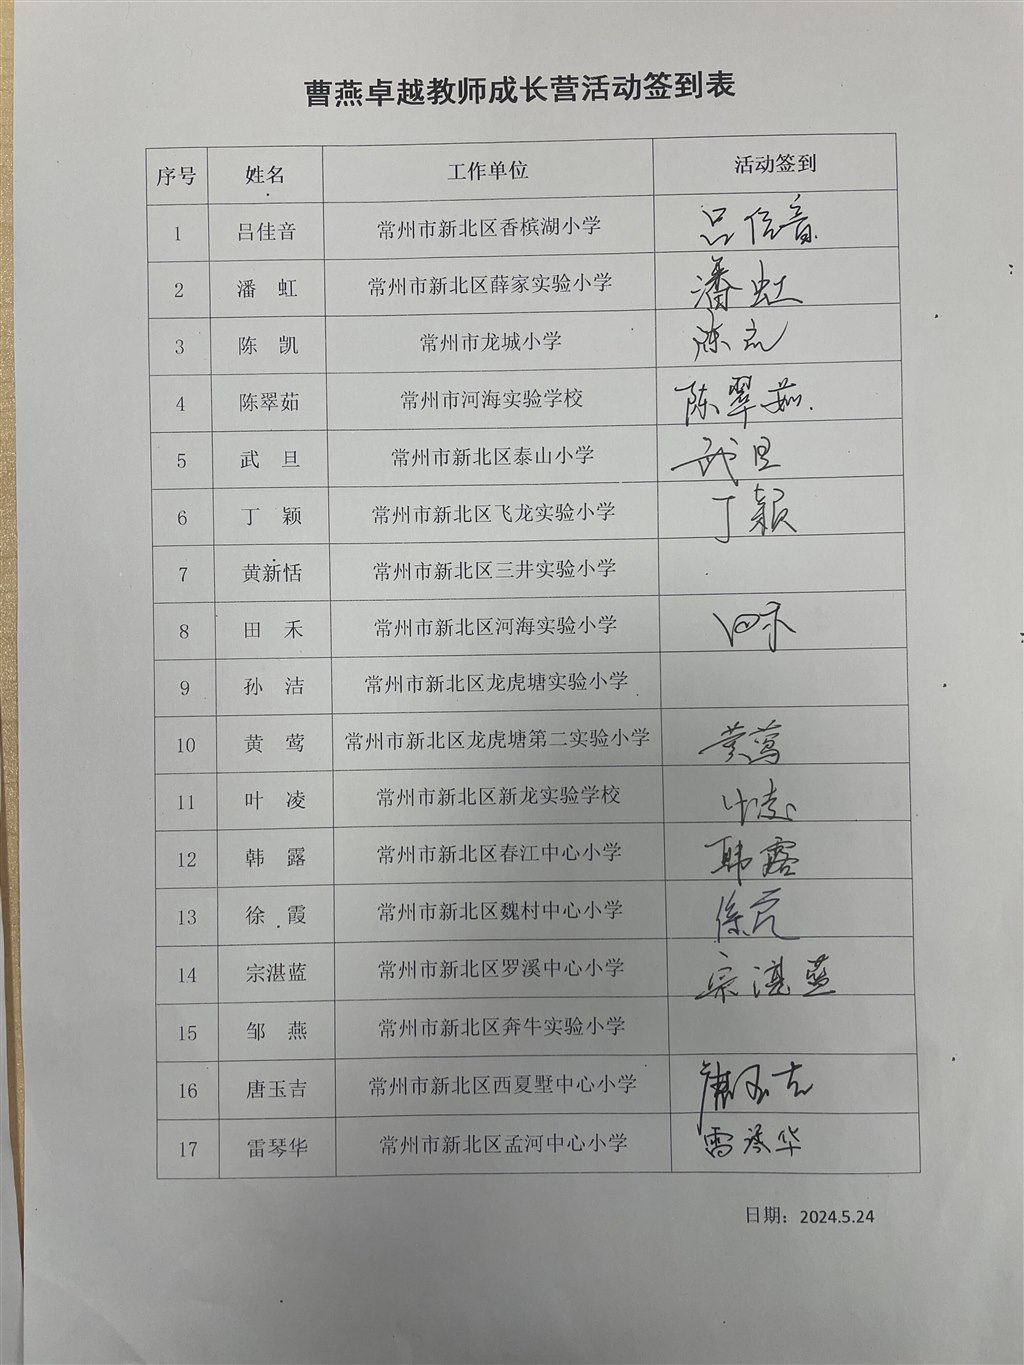 曹燕卓越教师成长营活动签到表
序号 姓名 工作单位 活动签到
1 吕佳音 常州市新北区香槟湖小学 吕佳音
2 潘 虹 常州市新北区薛家实验小学 潘虹
3 陈 凯 常州市龙城小学 陈凯
4 陈翠茹 常州市河海实验学校 陈翠茹
5 武 旦 常州市新北区泰山小学 武旦
6 丁 颖 常州市新北区飞龙实验小学 丁颖
7 黄新恬 常州市新北区三井实验小学
8 田 禾 常州市新北区河海实验小学 田禾
9 孙 洁 常州市新北区龙虎塘实验小学
10 黄 莺 常州市新北区龙虎塘第二实验小学 黄莺
11 叶 凌 常州市新北区新龙实验学校 叶凌
12 韩 露 常州市新北区春江中心小学 韩露
13 徐 霞 常州市新北区魏村中心小学 徐霞
14 宗湛蓝 常州市新北区罗溪中心小学 宗湛蓝
15 邹 燕 常州市新北区奔牛实验小学
16 唐玉吉 常州市新北区西夏墅中心小学 唐玉吉
17 雷琴华 常州市新北区孟河中心小学 雷琴华
日期：2024.5.24